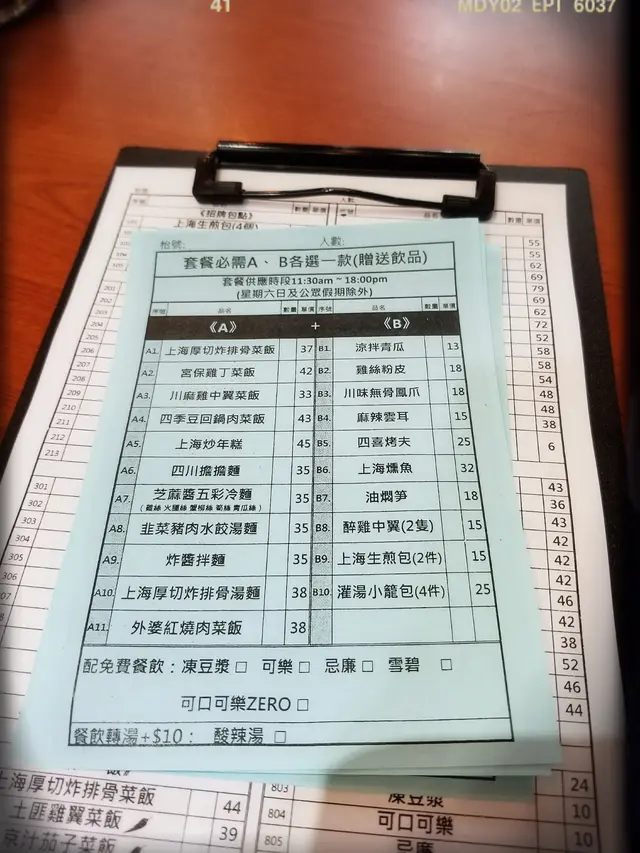 41
MDY02 EPI 6037
《招牌包點》
上海生煎包(4個)
枱號:
人數:
套餐必需A、B各選一款(贈送飲品)
套餐供應時段11:30am ~ 18:00pm
(星期六日及公眾假期除外)
序號 品名 數量 單價 序號 品名 數量 單價
《A》 + 《B》
A1. 上海厚切炸排骨菜飯 37 B1. 涼拌青瓜 13
A2. 宮保雞丁菜飯 42 B2. 雞絲粉皮 18
A3. 川麻雞中翼菜飯 33 B3. 川味無骨鳳爪 18
A4. 四季豆回鍋肉菜飯 43 B4. 麻辣雲耳 15
A5. 上海炒年糕 45 B5. 四喜烤夫 25
A6. 四川擔擔麵 35 B6. 上海燻魚 32
A7. 芝麻醬五彩冷麵 35 B7. 油燜笋 18
(雞絲 火腿絲 蟹柳絲 荀絲 青瓜絲)
A8. 韭菜豬肉水餃湯麵 35 B8. 醉雞中翼(2隻) 15
A9. 炸醬拌麵 35 B9. 上海生煎包(2件) 15
A10. 上海厚切炸排骨湯麵 38 B10. 灌湯小籠包(4件) 25
A11. 外婆紅燒肉菜飯 38
配免費餐飲：凍豆漿 □ 可樂 □ 忌廉 □ 雪碧 □
可口可樂ZERO □
餐飲轉湯+$10： 酸辣湯 □
201
202
203
204
205
206
207
208
209
210
211
212
213
301
302
303
304
305
306
307
55
55
62
69
79
69
62
72
52
58
58
54
48
48
38
6
43
36
43
42
42
46
42
38
52
46
44
上海厚切炸排骨菜飯 44
土匪雞翼菜飯 39
京汁茄子菜飯
803 凍豆漿 24
804 可口可樂 10
805 忌廉 10